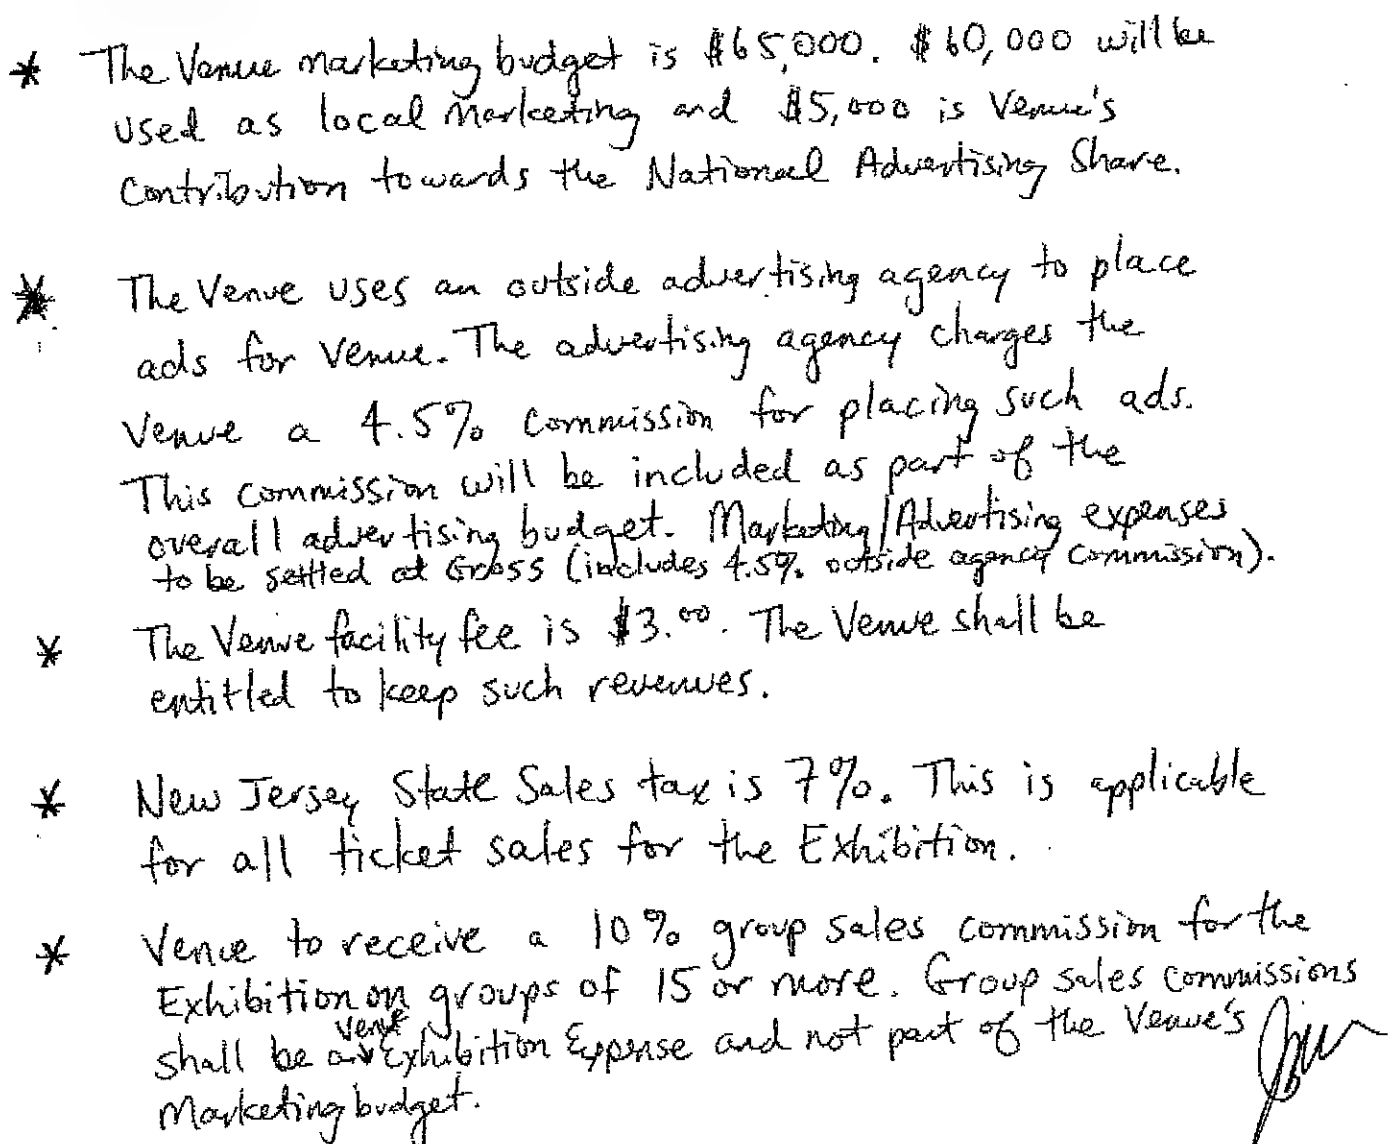 * The Venue Marketing budget is $65,000. $60,000 will be
used as local Marketing and $5,000 is Venue's
Contribution towards the National Advertising Share.
* The Venue uses an outside advertising agency to place
ads for Venue. The advertising agency charges the
Venue a 4.5% Commission for placing such ads.
This commission will be included as part of the
overall advertising budget. Marketing/Advertising expenses
to be settled at Gross (includes 4.5% outside agency Commission).
* The Venue facility fee is $3.00. The Venue shall be
entitled to keep such revenues.
* New Jersey State Sales tax is 7%. This is applicable
for all ticket sales for the Exhibition.
* Venue to receive a 10% group sales commission for the
Exhibition on groups of 15 or more. Group sales commissions
venue
shall be an Exhibition Expense and not part of the Venue's
Marketing budget.